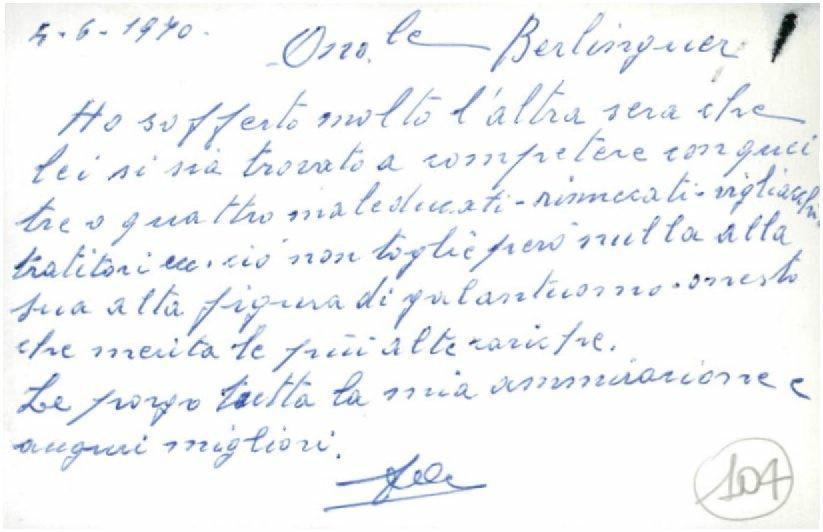 5-6-1970.
Ono.le Berlinguer
Ho sofferto molto l'altra sera che
lei si sia trovato a competere con quei
tre o quattro maleducati - rinnecati - vigliacchi -
tratitori ecc. ciò non toglie però nulla alla
sua alta figura di galantuomo - onesto
che merita le più alte cariche.
Le porgo tutta la mia ammirazione e
auguri migliori.
107